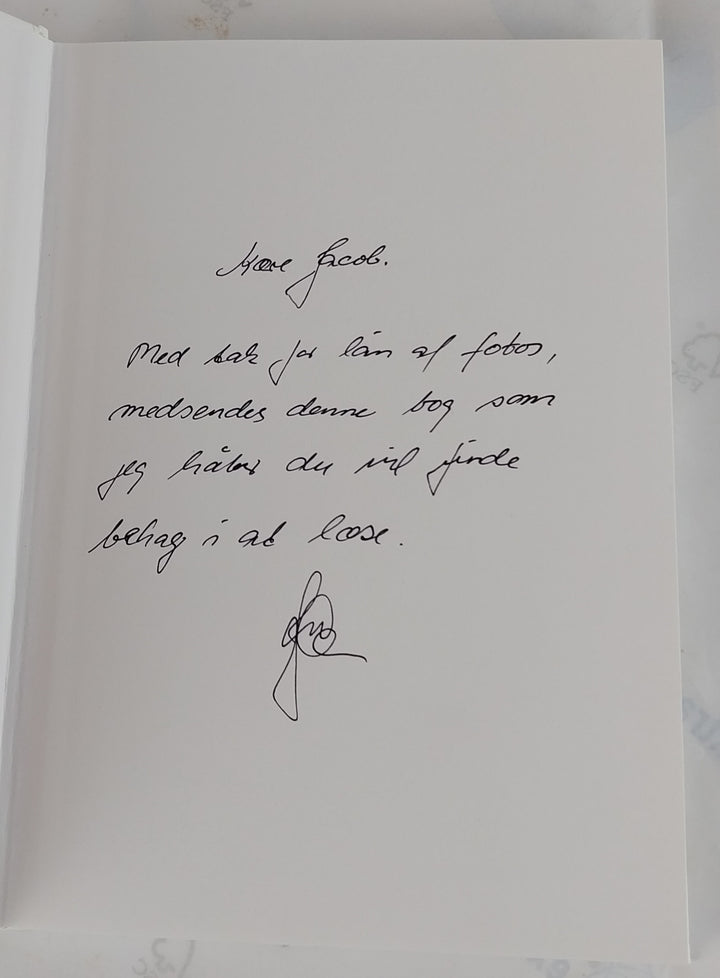 Kære Jacob.
Med tak for lån af fotos,
medsendes denne bog som
jeg håber du vil finde
behag i at læse.